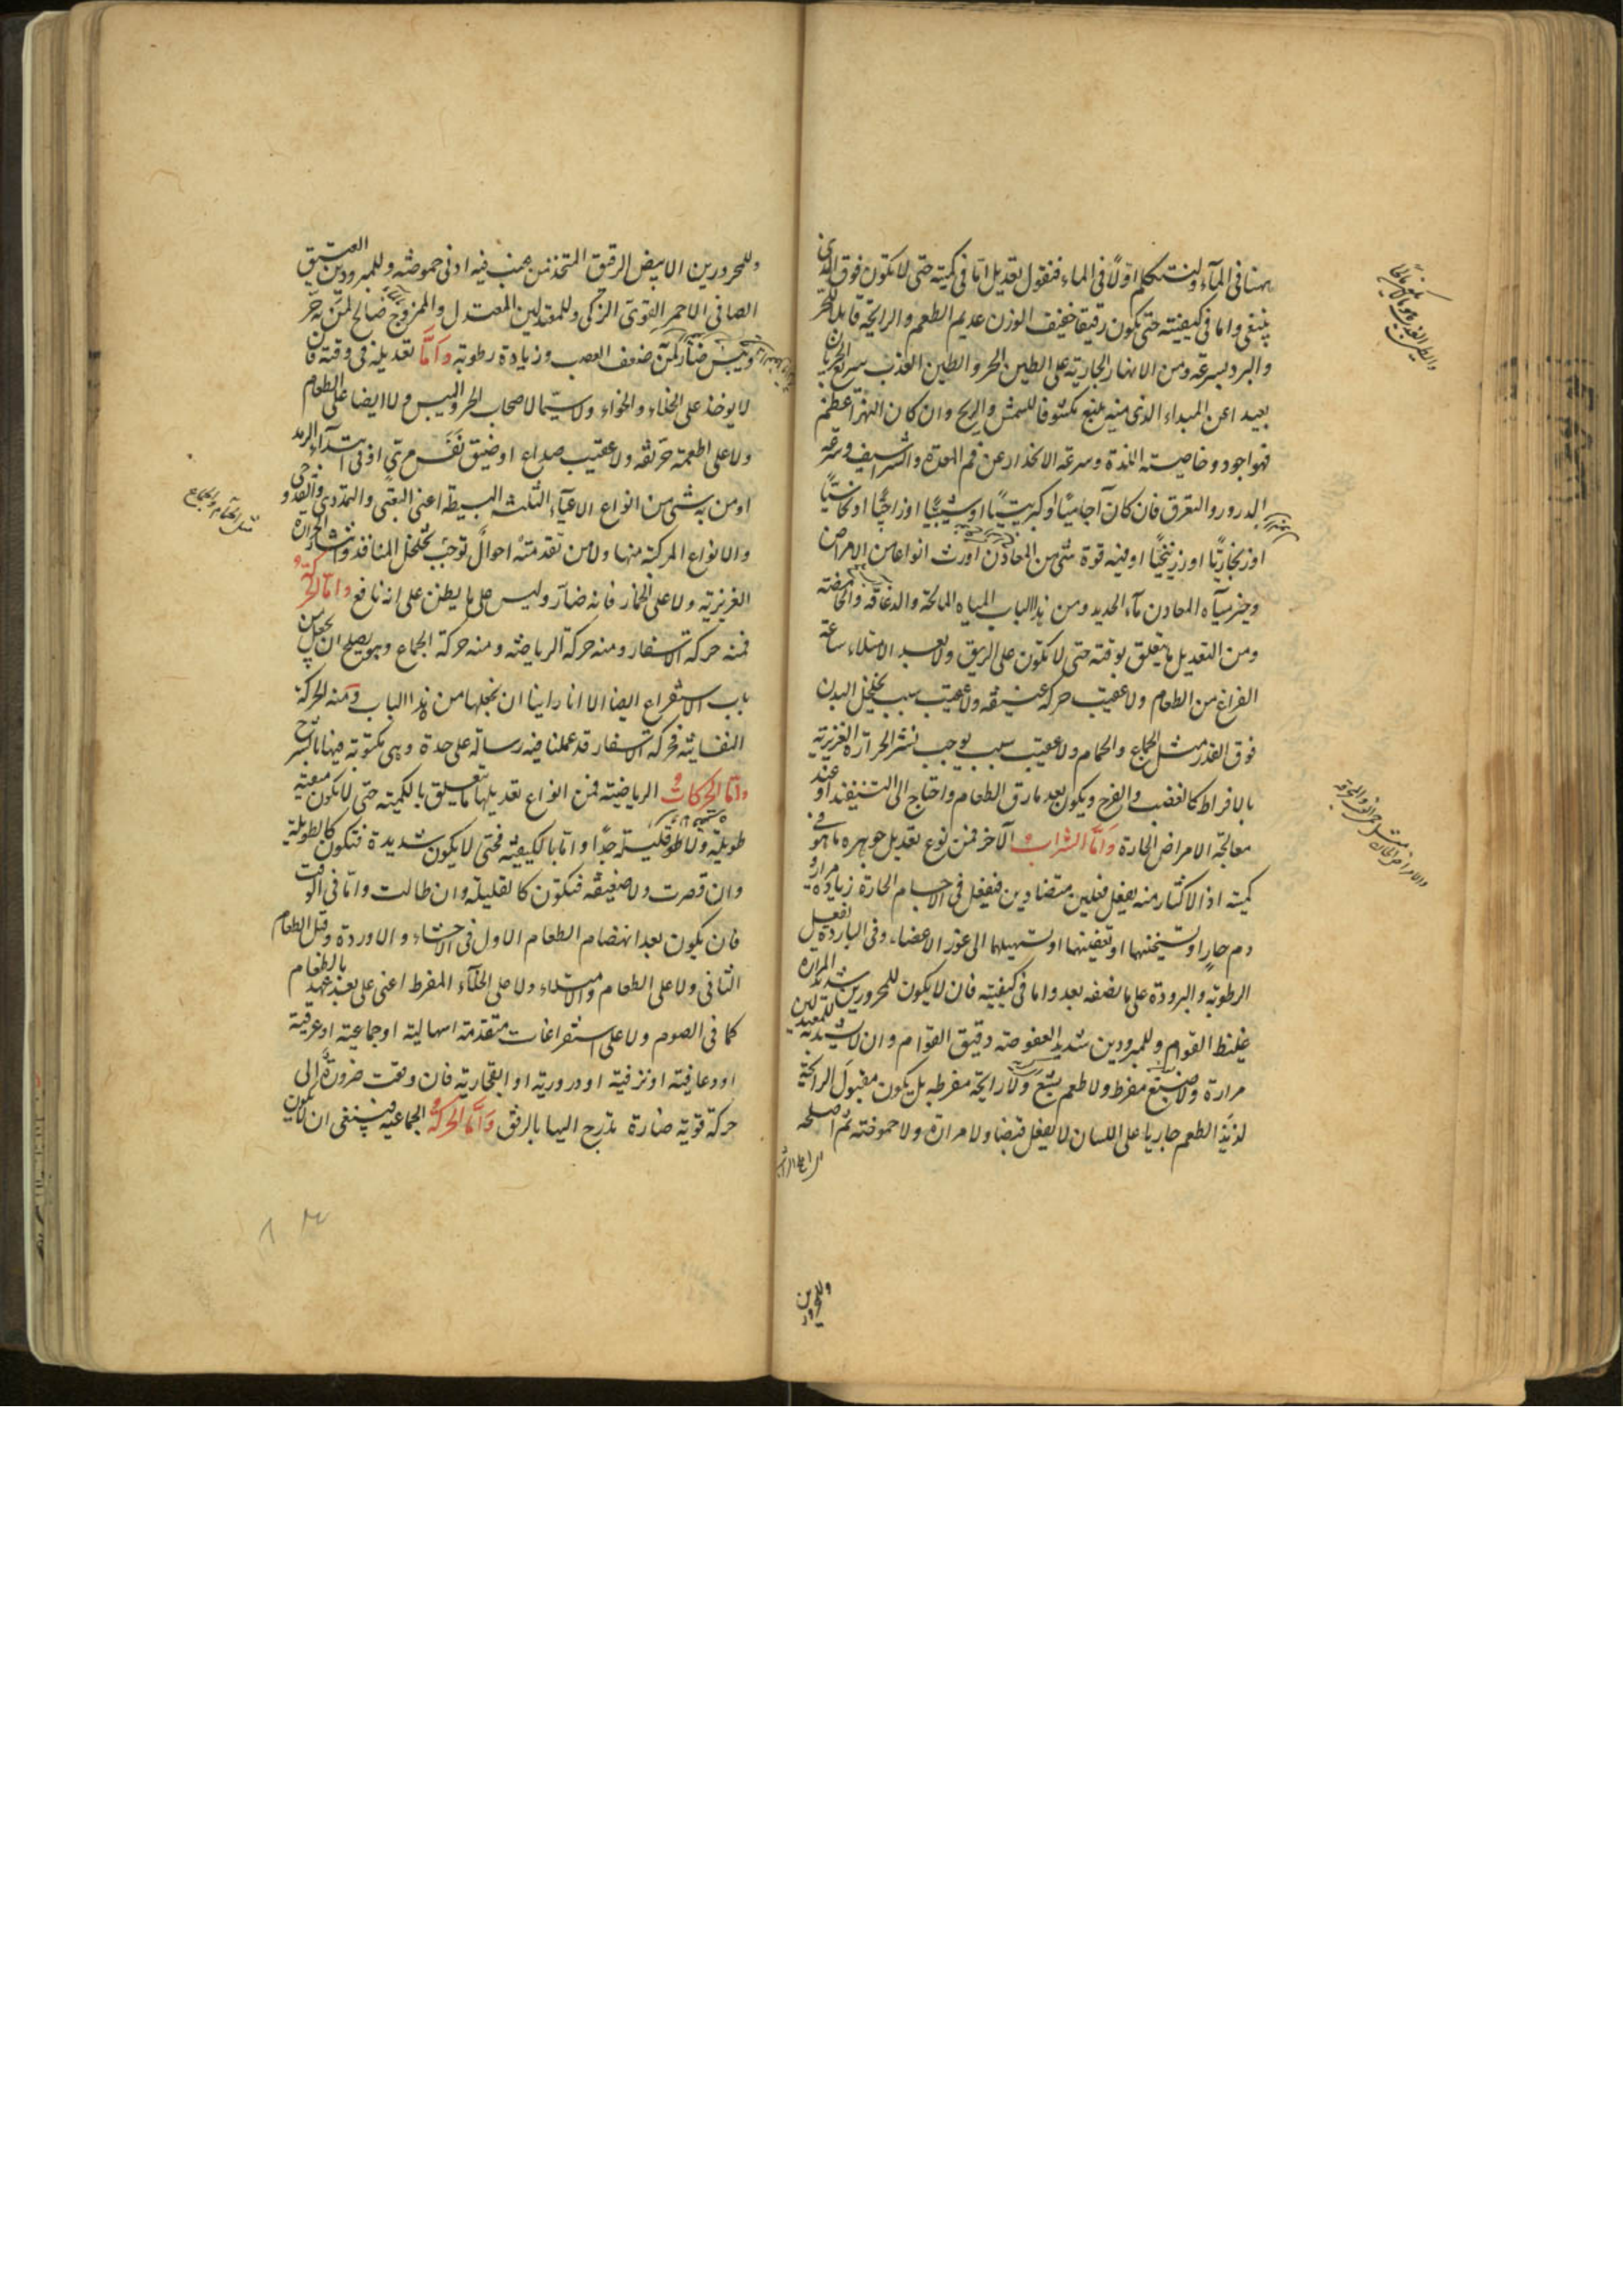 ههنا في الماء ولنتكلم اولا في الماء فنقول تعديله اما في كميته حتى لا يكون فوق الذي
ينبغي واما في كيفيته حتى يكون رقيقا خفيف الوزن عديم الطعم والرائحة قابلا للحر
والبرد بسرعة ومن الانهار الجارية على الطين الحر والطين العذب سريع الجريان
بعيدا عن المبداء الذي منه ينبع مكشوفا للشمس والريح وان كان النهر اعظم
فهو اجود وخاصيته اللذة وسرعة الانحدار عن فم المعدة والشراسيف وسرعة
الدرور والتعرق فان كان آجاميا او كبريتيا او شبيا او زاجيا او نحاسيا
او زنجاريا او زرنيخيا او فيه قوة شئ من المعادن اورث انواعا من الامراض
وخير مياه المعادن ماء الحديد ومن هذا الباب المياه المالحة والدعاقة والحامضة
ومن التعديل ما يتعلق بوقته حتى لا يكون على الريق ولا بعد الامتلاء ساعة
الفراغ من الطعام ولا عقيب حركة عنيفة ولا عقيب سبب يخلخل البدن
فوق القدر مثل الجماع والحمام ولا عقيب سبب يوجب نشر الحرارة الغريزية
بالافراط كالغضب والفرح ويكون بعد ما رق الطعام واحتاج الى التنفيذ او عند
معالجة الامراض الحارة واما الشراب الآخر فمن نوع تعديل جوهره ما هو في
كميته اذ الاكثار منه يفعل فعلين متضادين فيفعل في الاجسام الحارة زيادة مرار و
دم حار او تسخينها او تعفينها او تسهيلها الى غور الاعضاء وفي الباردة يفعل
الرطوبة والبرودة على ما نصفه بعد واما في كيفيته فان لا يكون للمحرورين شديد المرارة
غليظ القوام وللمبرودين شديد العفوصة دقيق القوام وان لا للمعتدلين شديد
مرارة ولا مفرط ولا طعم بشع ولا رائحة مفرطة بل يكون مقبول الرائحة
لذيذ الطعم جاريا على اللسان لا يفعل قبضا ولا مرارة ولا حموضة ثم اصلحه
وللمحرورين
وللمحرورين الابيض الرقيق المتخذ من عنب فيه ادنى حموضة وللمبرودين العتيق
الصافي الاحمر القوي الزكي وللمعتدلين المعتدل والممزوج صالح لمن به حر
ويبس ضار لمن ضعف العصب وزيادة رطوبة واما تعديله في وقته فان
لا يوخذ على الخلاء والخواء ولا سيما لاصحاب الحر واليبس ولا ايضا على الطعام
ولا على اطعمة حريفة ولا عقيب صداع او ضيق نفس مري او في ابتداء الرمد
او من به شئ من انواع الاعياء الثلثة البسيطة اعني التعبي والتمددي والقروحي
والانواع المركبة منها ولا من تقدمته احوال توجب تخلخل المنافذ وانتشار الحرارة
الغريزية ولا على الخمار فانه ضار وليس على ما يظن على انه نافع واما الحركة
فمنه حركة الاسفار ومنه حركة الرياضة ومنه حركة الجماع وهو يصلح ان يجعل من
باب الاستفراغ ايضا الا انا راينا ان نجعلها من هذا الباب ومنه الحركة
النفسانية فحركة الاسفار قد عملنا فيه رسالة على حدة وهي مكتوبة فيها
واما الحركات الرياضية فمن انواع تعديلها ما يتعلق بالكمية حتى لا يكون متعبة
طويلة ولا قليلة جدا واما بالكيفية فحتى لا يكون شديدة فتكون كالطويلة
وان قصرت ولا ضعيفة فتكون كالقليلة وان طالت واما في الوقت
فان يكون بعد انهضام الطعام الاول في الاحشاء والاوردة وقبل الطعام
الثاني ولا على الطعام والامتلاء ولا على الخلاء المفرط اعني على بعد عهد بالطعام
كما في الصوم ولا على استفراغات متقدمة اسهالية او جماعية او عرقية
او رعافية او نزفية او درورية او انفجارية فان وقعت ضرورة الى
حركة قوية ضارة تدرج اليها بالرفق واما الحركة الجماعية فينبغي ان لا يكون
مثل الحمام والجماع